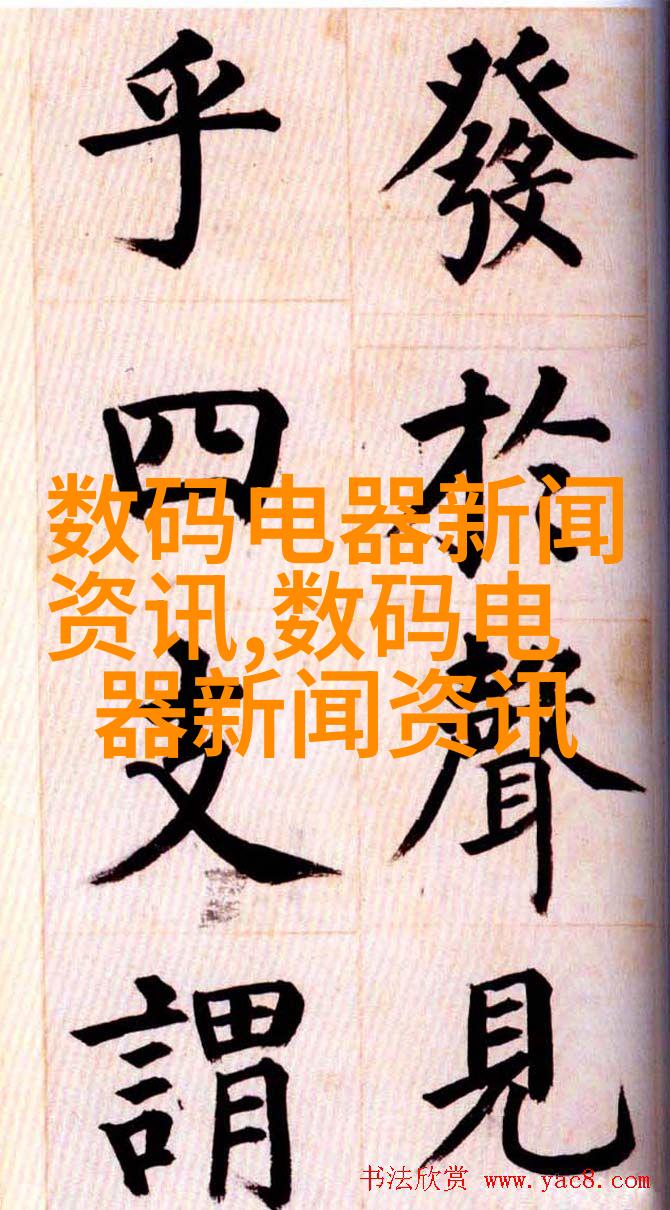 發扵聲見
乎四支謂
数码电器新闻
资讯,数码电
器新闻资讯
书法欣赏 www.yac8.com